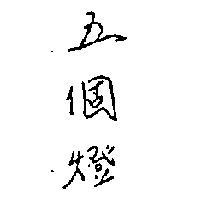 五個燈